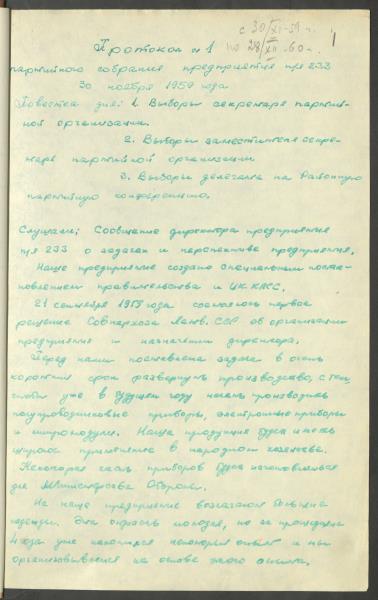 с 30/XI-59 г.
по 28/XII-60 г.
1
Протокол №1
партийного собрания предприятия п/я 233
30 ноября 1959 года
Повестка дня: 1. Выборы секретаря партий-
ной организации.
2. Выборы заместителя секре-
таря партийной организации
3. Выборы делегата на Районную
партийную конференцию.
Слушали: Сообщение директора предприятия
п/я 233 о задачах и перспективе предприятия.
Наше предприятие создано специальным поста-
новлением правительства и ЦК КПСС.
21 сентября 1959 года состоялось первое
решение Совнархоза Латв. ССР об организации
предприятия и назначении директора.
Перед нами поставлена задача в очень
короткий срок развернуть производство, с тем,
чтобы уже в будущем году начать производить
полупроводниковые приборы, электронные приборы
и микромодули. Наша продукция будет иметь
широкое применение в народном хозяйстве.
Некоторая часть приборов будет изготовляться
для Министерства Обороны.
На наше предприятие возлагают большие
надежды. Эта отрасль молодая, но за прошедшие
4 года уже накопился некоторый опыт и мы
организовываемся на основе этого опыта.